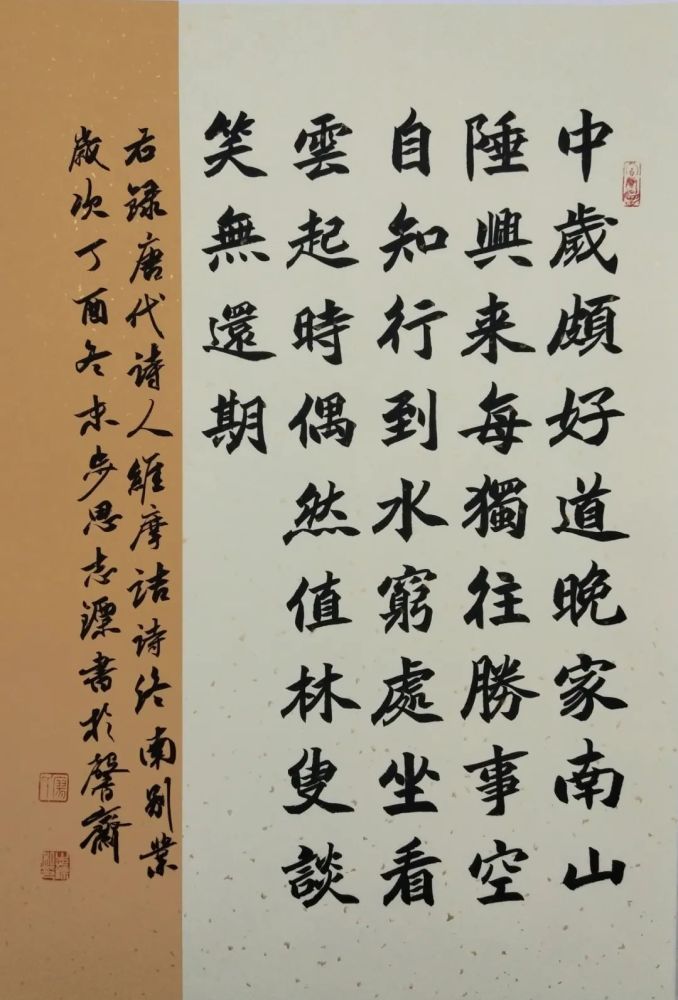 中歲頗好道晚家南山
陲興来每獨往勝事空
自知行到水窮處坐看
雲起時偶然值林叟談
笑無還期
右錄唐代詩人維摩詰詩终南别業
歲次丁酉冬末步思志鏢書於馨齋